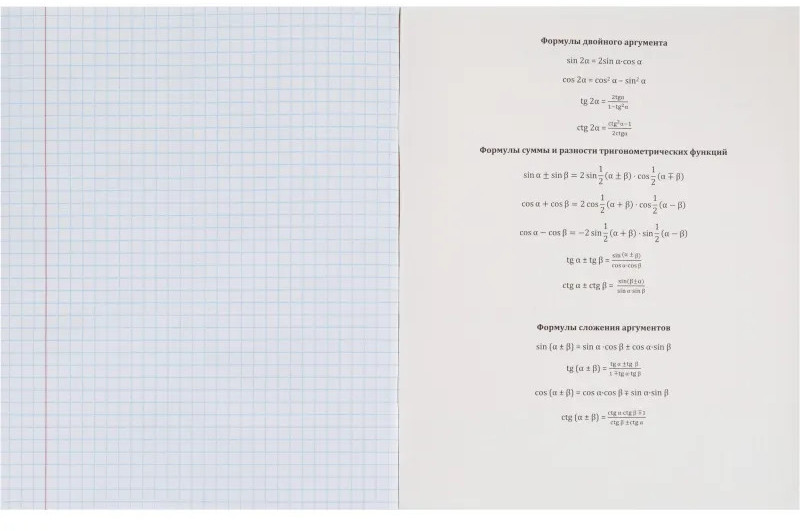 Формулы двойного аргумента
sin 2α = 2sin α·cos α
cos 2α = cos² α – sin² α
tg 2α = 2tgα / 1−tg²α
ctg 2α = ctg²α−1 / 2ctgα
Формулы суммы и разности тригонометрических функций
sin α ± sin β = 2 sin 1/2 (α ± β) · cos 1/2 (α ∓ β)
cos α + cos β = 2 cos 1/2 (α + β) · cos 1/2 (α − β)
cos α − cos β = −2 sin 1/2 (α + β) · sin 1/2 (α − β)
tg α ± tg β = sin (α ± β) / cos α·cos β
ctg α ± ctg β = sin(β±α) / sin α·sin β
Формулы сложения аргументов
sin (α ± β) = sin α ·cos β ± cos α·sin β
tg (α ± β) = tg α ± tg β / 1 ∓ tg α·tg β
cos (α ± β) = cos α·cos β ∓ sin α·sin β
ctg (α ± β) = ctg α·ctg β ∓ 1 / ctg β ± ctg α